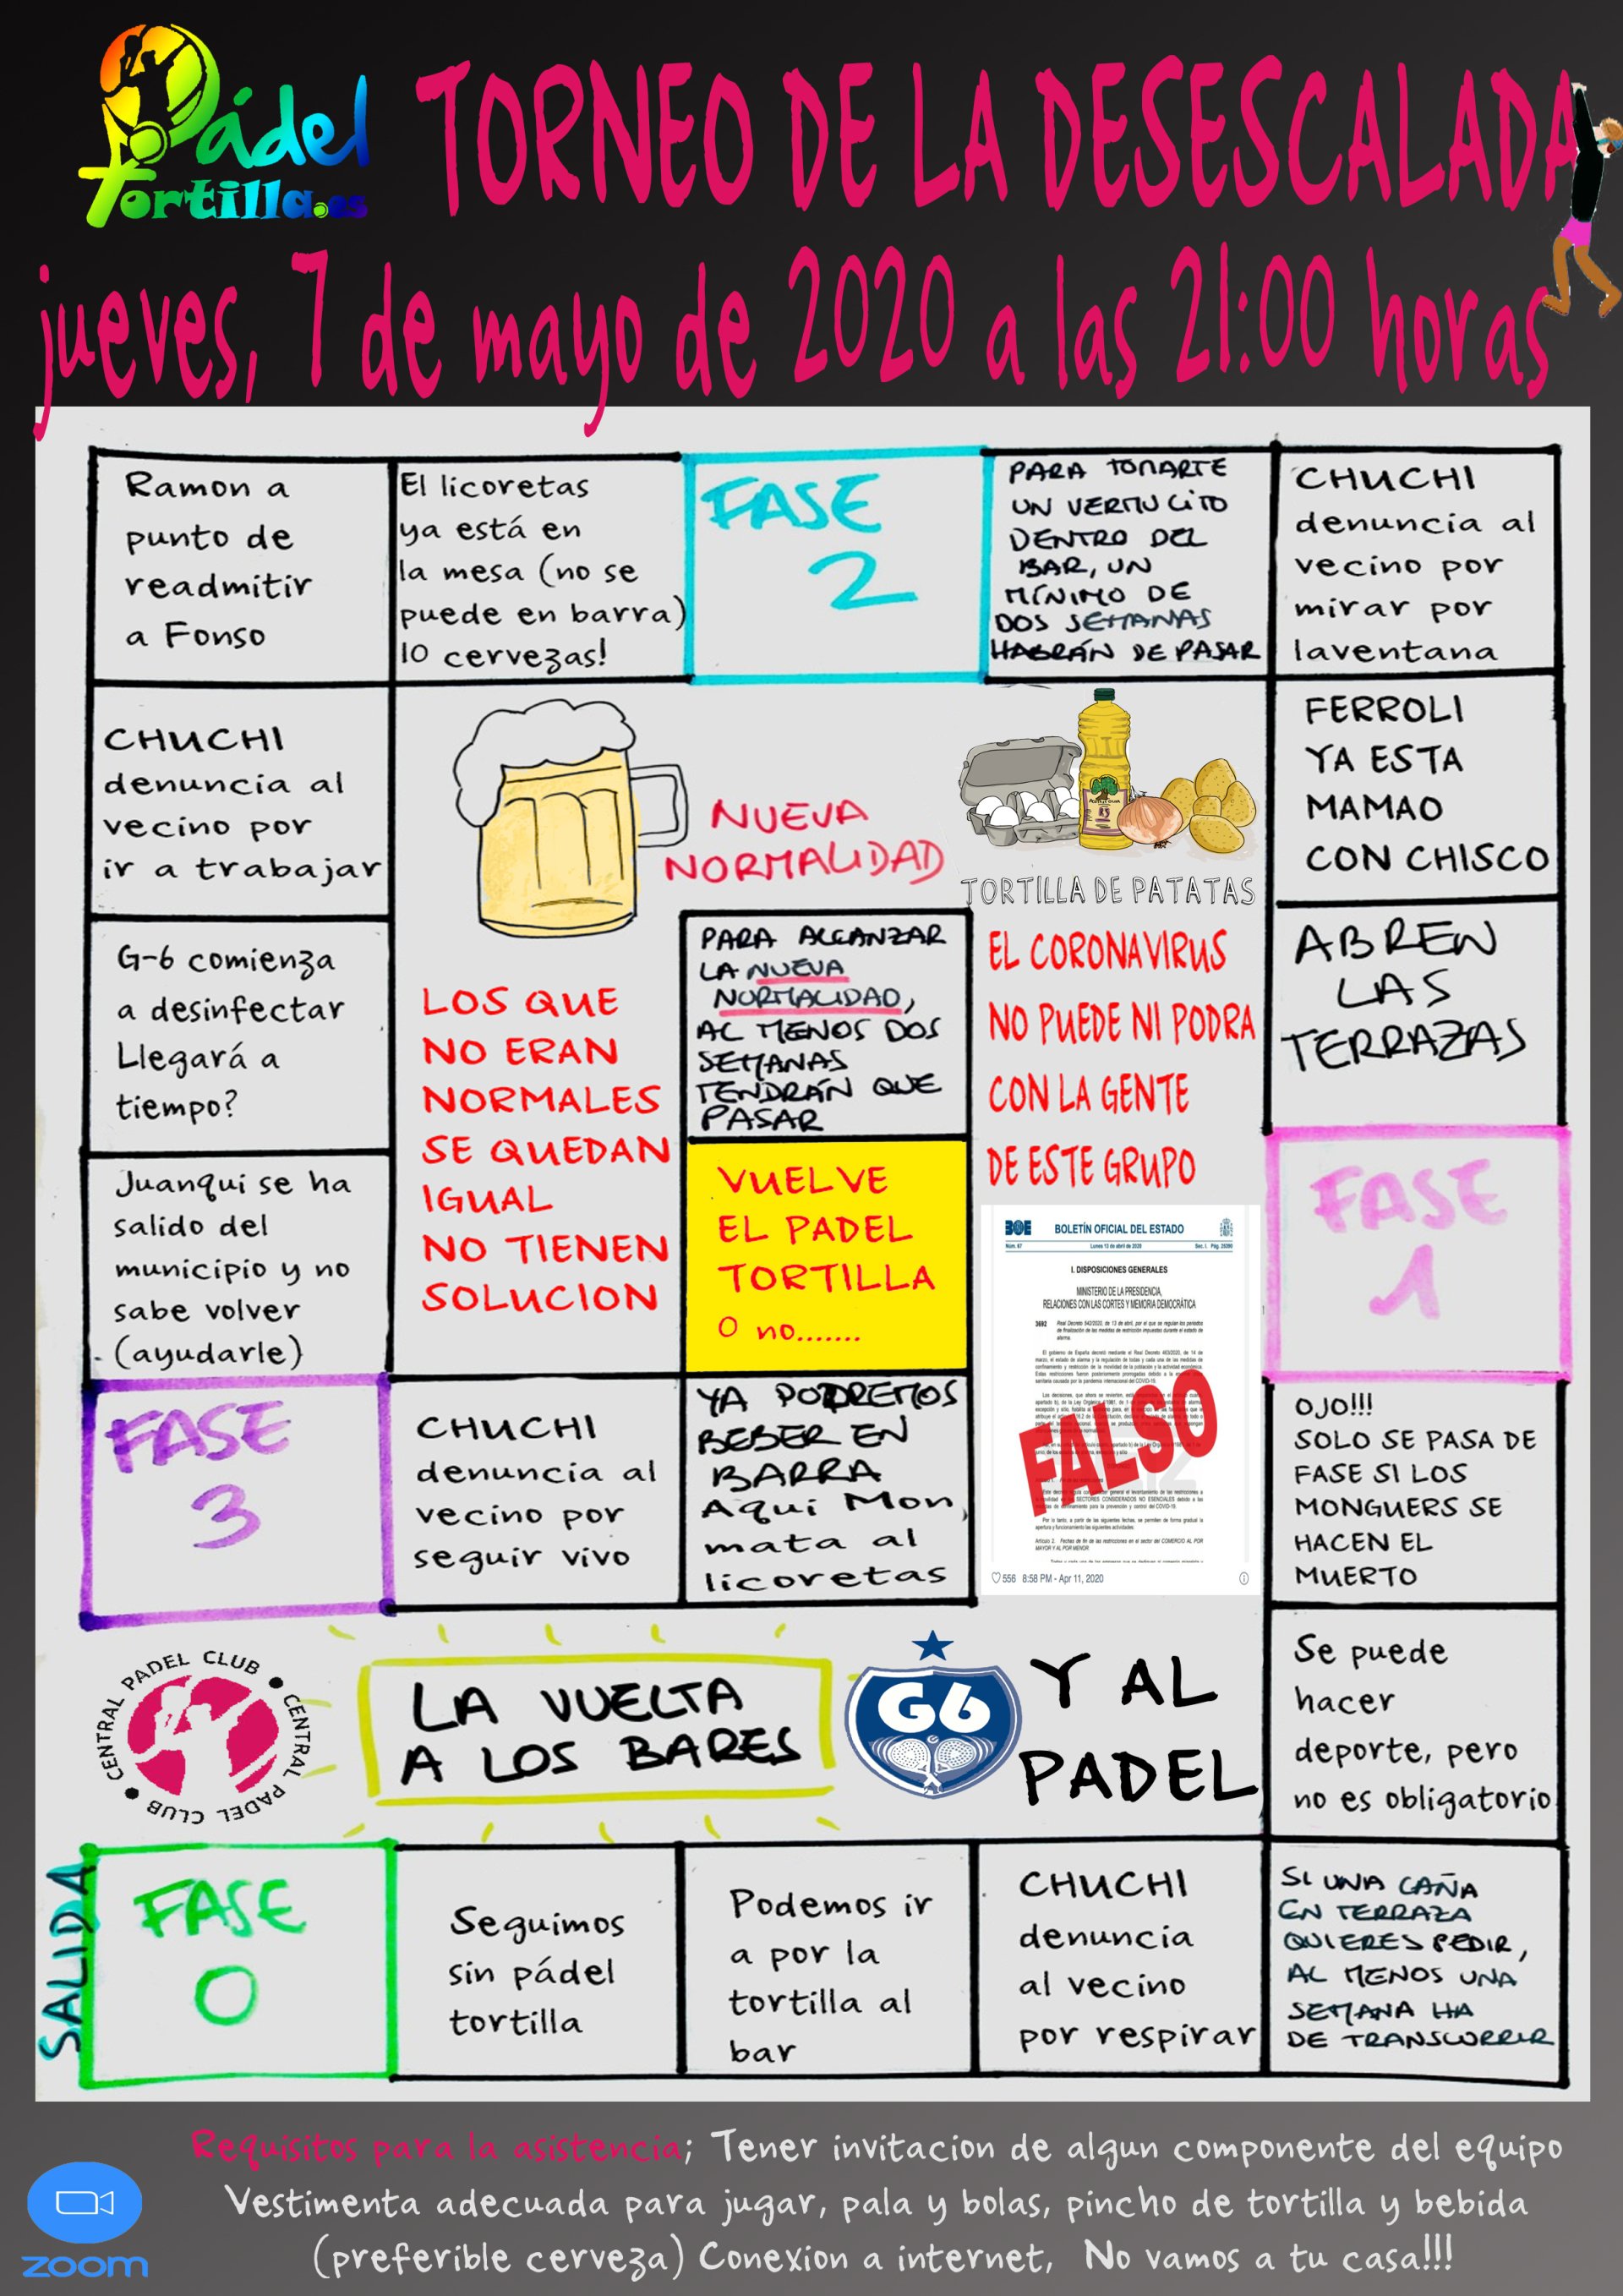 Pádel
Tortilla.es
TORNEO DE LA DESESCALADA
jueves, 7 de mayo de 2020 a las 21:00 horas
Ramon a
punto de
readmitir
a Fonso
El licoretas
ya está en
la mesa (no se
puede en barra)
10 cervezas!
FASE
2
PARA TOMARTE
UN VERMUCITO
DENTRO DEL
BAR, UN
MÍNIMO DE
DOS SEMANAS
HABRÁN DE PASAR
CHUCHI
denuncia al
vecino por
mirar por
laventana
CHUCHI
denuncia al
vecino por
ir a trabajar
NUEVA
NORMALIDAD
TORTILLA DE PATATAS
FERROLI
YA ESTA
MAMAO
CON CHISCO
G-6 comienza
a desinfectar
Llegará a
tiempo?
LOS QUE
NO ERAN
NORMALES
SE QUEDAN
IGUAL
NO TIENEN
SOLUCION
PARA ALCANZAR
LA NUEVA
NORMALIDAD,
AL MENOS DOS
SEMANAS
TENDRÁN QUE
PASAR
EL CORONAVIRUS
NO PUEDE NI PODRA
CON LA GENTE
DE ESTE GRUPO
ABREN
LAS
TERRAZAS
Juanqui se ha
salido del
municipio y no
sabe volver
(ayudarle)
VUELVE
EL PADEL
TORTILLA
O no.......
BOE
BOLETÍN OFICIAL DEL ESTADO
Núm. 67
Lunes 13 de abril de 2020
I. DISPOSICIONES GENERALES
MINISTERIO DE LA PRESIDENCIA,
RELACIONES CON LAS CORTES Y MEMORIA DEMOCRÁTICA
FALSO
556 8:58 PM - Apr 11, 2020
FASE
1
FASE
3
CHUCHI
denuncia al
vecino por
seguir vivo
YA PODREMOS
BEBER EN
BARRA
Aqui Mon
mata al
licoretas
OJO!!!
SOLO SE PASA DE
FASE SI LOS
MONGUERS SE
HACEN EL
MUERTO
CENTRAL PADEL CLUB
CENTRAL PADEL CLUB
LA VUELTA
A LOS BARES
G6
Y AL
PADEL
Se puede
hacer
deporte, pero
no es obligatorio
SALIDA
FASE
0
Seguimos
sin pádel
tortilla
Podemos ir
a por la
tortilla al
bar
CHUCHI
denuncia
al vecino
por respirar
SI UNA CAÑA
EN TERRAZA
QUIERES PEDIR,
AL MENOS UNA
SEMANA HA
DE TRANSCURRIR
Requisitos para la asistencia; Tener invitacion de algun componente del equipo
Vestimenta adecuada para jugar, pala y bolas, pincho de tortilla y bebida
(preferible cerveza) Conexion a internet, No vamos a tu casa!!!
zoom